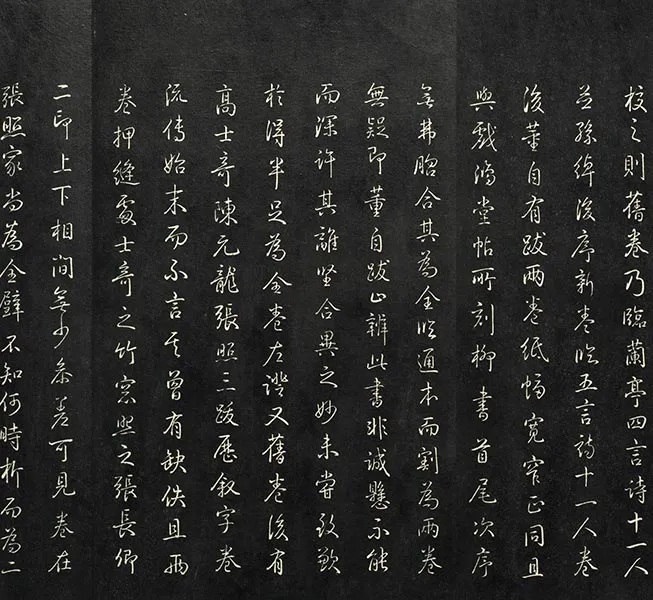 校之則舊卷乃臨蘭亭四言詩十一人
並孫綽後序新卷臨五言詩十一人卷
後董自有跋兩卷紙幅寬窄正同且
與戲鴻堂帖所刻柳書首尾次序
無弗脗合其為全臨通本而割為兩卷
無疑即董自跋止辨此書非誠懸不能
而深許其離堅合異之妙未嘗致歉
於得半足為全卷左證又舊卷後有
高士奇陳元龍張照三跋歷敘字卷
流傳始末而不言其曾有缺佚且兩
卷押縫處士奇之竹窓照之張長卿
二印上下相間無少參差可見卷在
張照家尚為全璧不知何時析而為二